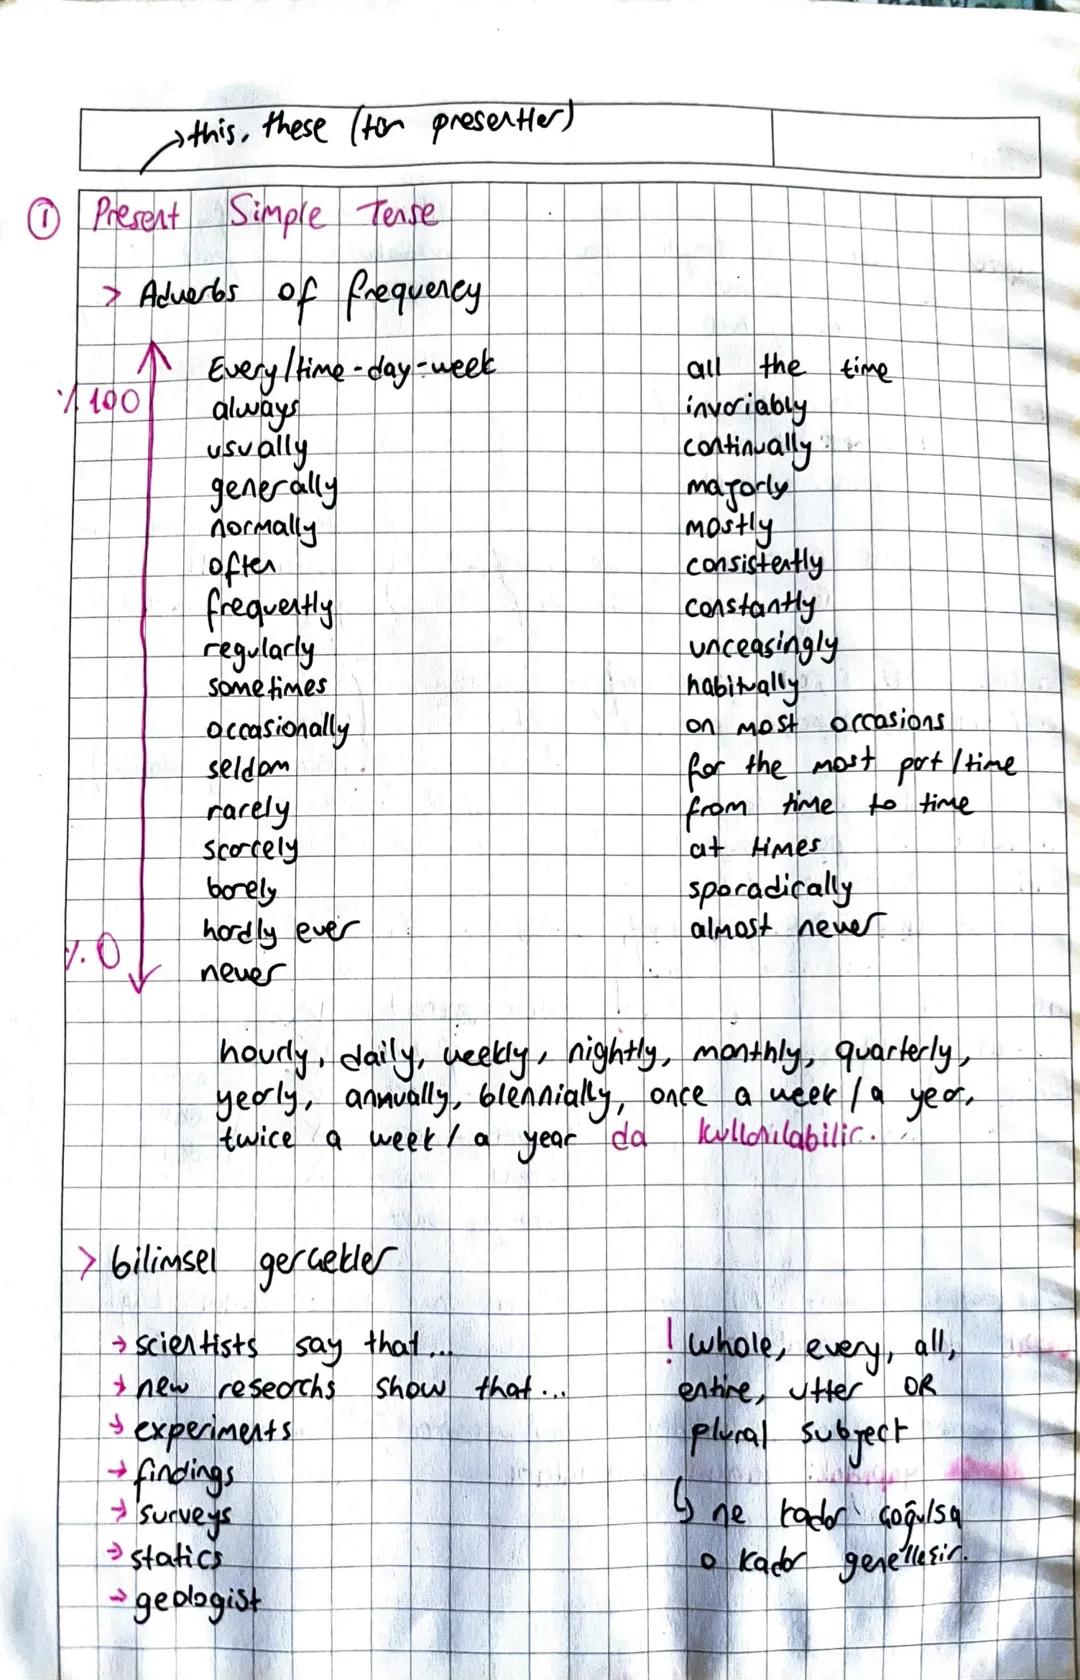 →this, these (tüm presentler)
① Present Simple Tense
> Adverbs of frequency
Every/time-day-week
always
usually
generally
normally
often
frequently
regularly
sometimes
occasionally
seldom
rarely
scarcely
barely
hardly ever
never
% 100
% 0
all the time
invariably
continually
majorly
mostly
consistently
constantly
unceasingly
habitually
on most occasions
for the most part/time
from time to time
at times
sporadically
almost never
hourly, daily, weekly, nightly, monthly, quarterly,
yearly, annually, biennially, once a week/a year,
twice a week/ a year da kullanılabilir.
> bilimsel gerçekler
→ scientists say that...
→ new researchs show that...
→ experiments
→ findings
→ surveys
→ statics
→ geologist
! whole, every, all,
entire, utter OR
plural subject
↳ ne kadar çoğulsa
o kadar genelleşir.